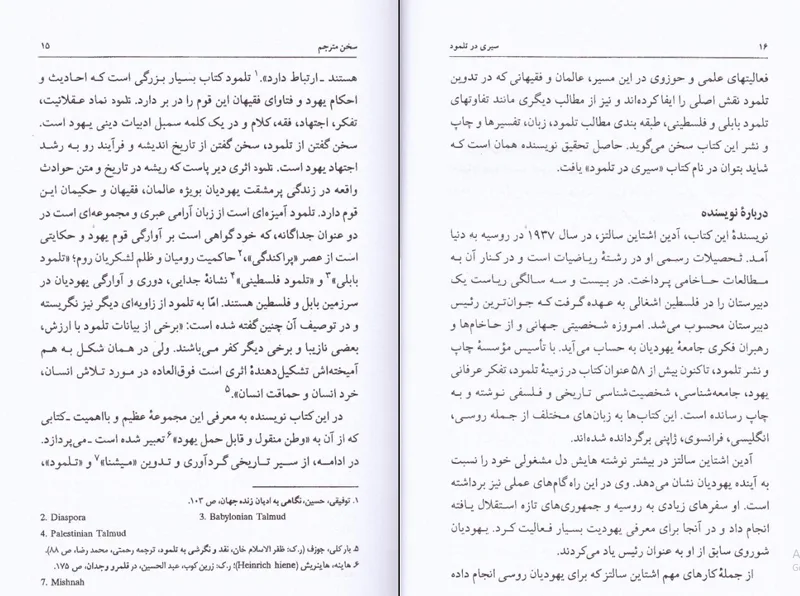 ۱۵ سخن مترجم
هستند ـ ارتباط دارد».۱ تلمود کتاب بسیار بزرگی است که احادیث و
احکام یهود و فتاوای فقیهان این قوم را در بر دارد. تلمود نماد عقلانیت،
تفکر، اجتهاد، فقه، کلام و در یک کلمه سمبل ادبیات دینی یهود است.
سخن گفتن از تلمود، سخن گفتن از تاریخ اندیشه و فرآیند رو به رشد
اجتهاد یهود است. تلمود اثری دیر پاست که ریشه در تاریخ و متن حوادث
واقعه در زندگی پرمشقت یهودیان بویژه عالمان، فقیهان و حکیمان این
قوم دارد. تلمود آمیزه‌ای است از زبان آرامی عبری و مجموعه‌ای است در
دو عنوان جداگانه، که خود گواهی است بر آوارگی قوم یهود و حکایتی
است از عصر «پراکندگی»،۲ حاکمیت رومیان و ظلم لشکریان روم؛ «تلمود
بابلی»۳ و «تلمود فلسطینی»۴ نشانهٔ جدایی، دوری و آوارگی یهودیان در
سرزمین بابل و فلسطین هستند. امّا به تلمود از زاویه‌ای دیگر نیز نگریسته
و در توصیف آن چنین گفته شده است: «برخی از بیانات تلمود با ارزش،
بعضی نازیبا و برخی دیگر کفر می‌باشند. ولی در همان شکل به هم
آمیخته‌اش تشکیل‌دهندهٔ اثری است فوق‌العاده در مورد تلاش انسان،
خرد انسان و حماقت انسان».۵
در این کتاب نویسنده به معرفی این مجموعهٔ عظیم و بااهمیت ـ کتابی
که از آن به «وطن منقول و قابل حمل یهود»۶ تعبیر شده است ـ می‌پردازد.
در ادامه، از سیر تاریخی گردآوری و تدوین «میشنا»۷ و «تلمود»،
۱. توفیقی، حسین، نگاهی به ادیان زنده جهان، ص ۱۰۳.
2. Diaspora 3. Babylonian Talmud
4. Palestinian Talmud
۵. بارکلی، جوزف (ر.ک: ظفر الاسلام خان، نقد و نگرشی به تلمود، ترجمه رحمتی، محمد رضا، ص ۸۸).
۶. هاینه، هاینریش (Heinrich hiene)؛ ر.ک: زرین کوب، عبد الحسین، در قلمرو وجدان، ص ۱۷۵.
7. Mishnah
۱۶ سیری در تلمود
فعالیتهای علمی و حوزوی در این مسیر، عالمان و فقیهانی که در تدوین
تلمود نقش اصلی را ایفا کرده‌اند و نیز از مطالب دیگری مانند تفاوتهای
تلمود بابلی و فلسطینی، طبقه بندی مطالب تلمود، زبان، تفسیرها و چاپ
و نشر این کتاب سخن می‌گوید. حاصل تحقیق نویسنده همان است که
شاید بتوان در نام کتاب «سیری در تلمود» یافت.
دربارهٔ نویسنده
نویسندهٔ این کتاب، آدین اشتاین سالتز، در سال ۱۹۳۷ در روسیه به دنیا
آمد. تحصیلات رسمی او در رشتهٔ ریاضیات است و در کنار آن به
مطالعات حاخامی پرداخت. در بیست و سه سالگی ریاست یک
دبیرستان را در فلسطین اشغالی به عهده گرفت که جوان‌ترین رئیس
دبیرستان محسوب می‌شد. امروزه شخصیتی جهانی و از حاخام‌ها و
رهبران فکری جامعهٔ یهودیان به حساب می‌آید. با تأسیس مؤسسهٔ چاپ
و نشر تلمود، تاکنون بیش از ۵۸ عنوان کتاب در زمینهٔ تلمود، تفکر عرفانی
یهود، جامعه‌شناسی، شخصیت‌شناسی تاریخی و فلسفی نوشته و به
چاپ رسانده است. این کتاب‌ها به زبان‌های مختلف از جمله روسی،
انگلیسی، فرانسوی، ژاپنی برگردانده شده‌اند.
آدین اشتاین سالتز در بیشتر نوشته هایش دل مشغولی خود را نسبت
به آینده یهودیان نشان می‌دهد. وی در این راه گام‌های عملی نیز برداشته
است. او سفرهای زیادی به روسیه و جمهوری‌های تازه استقلال یافته
انجام داد و در آنجا برای معرفی یهودیت بسیار فعالیت کرد. یهودیان
شوروی سابق از او به عنوان رئیس یاد می‌کردند.
از جملهٔ کارهای مهم اشتاین سالتز که برای یهودیان روسی انجام داده